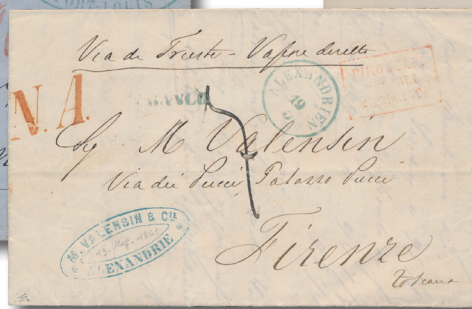 PORT-LOUIS
Via di Trieste - Vapore diretto
N.A.
FRANCO
ALEXANDRIEN
19
PIROSCAFI
Sig. M Valensin
Via dei Pucci Palazzo Pucci
Firenze
Toscana
M. VALENSIN & CIE
ALEXANDRIE